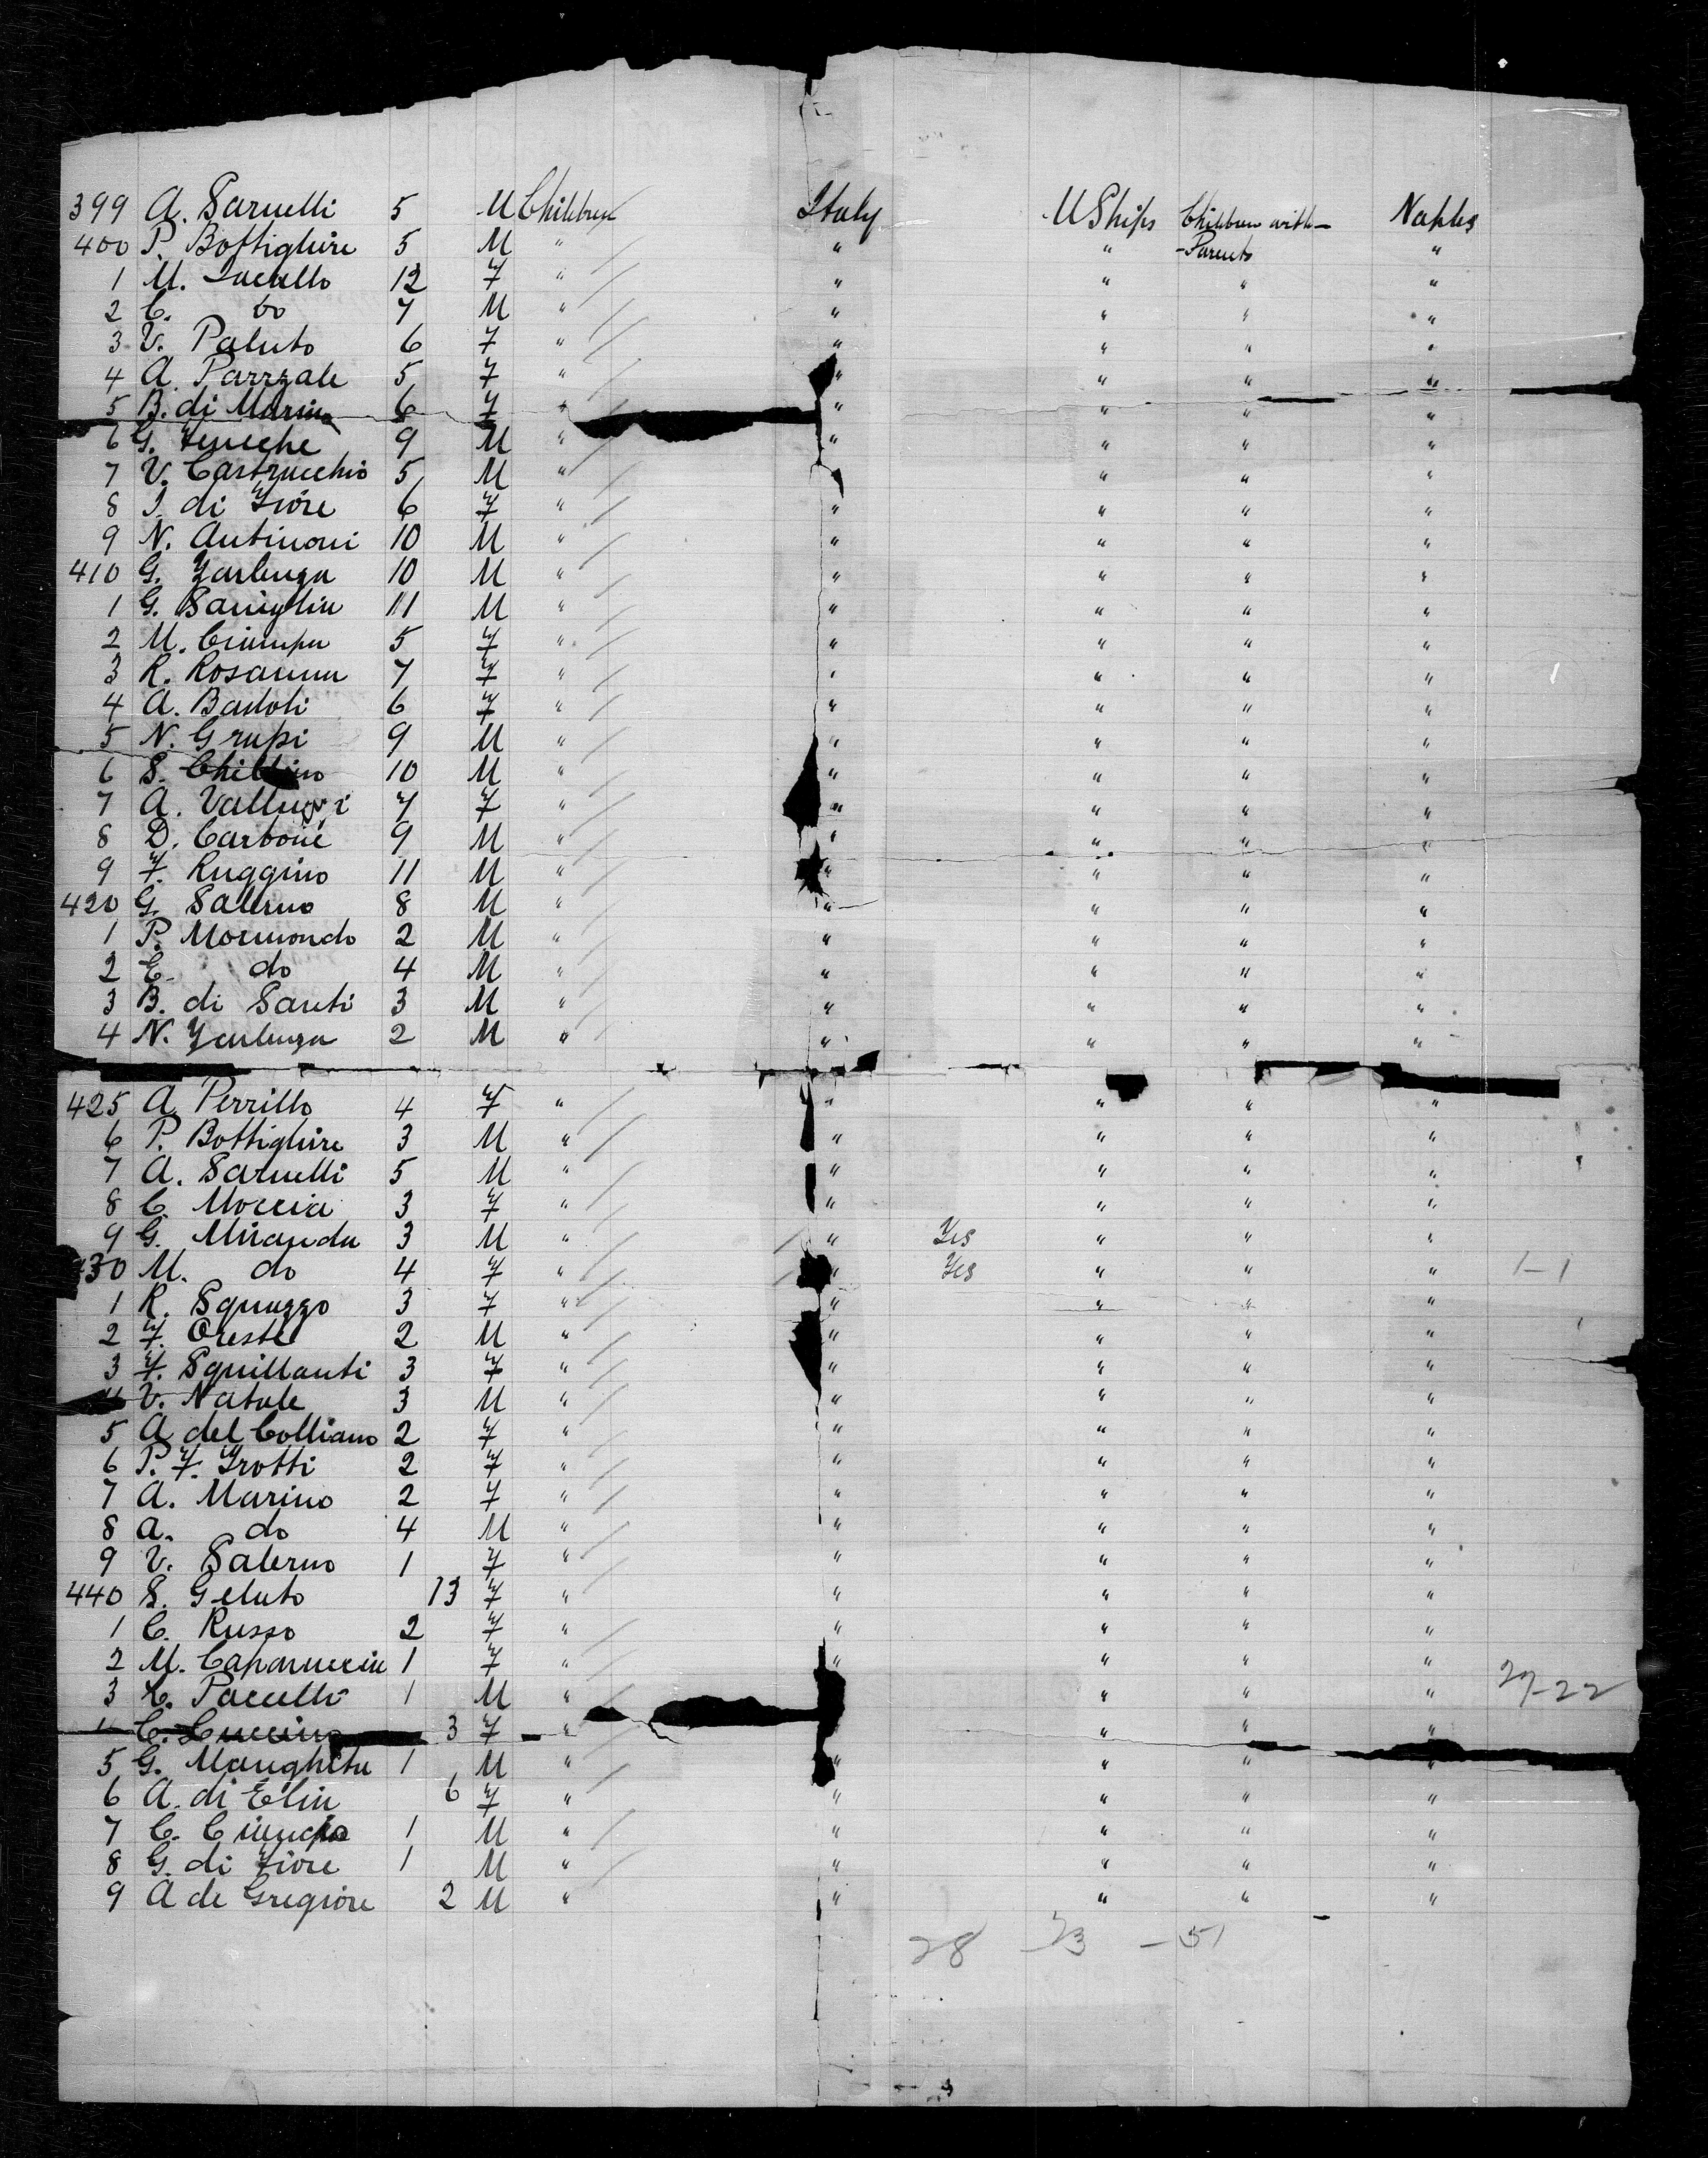 399 A. Sarnelli 5 M Children Italy U Ships Children with- Naples
400 P. Bottighire 5 M " " " -Parents "
1 M. Lucullo 12 F " " " " "
2 C. do 7 M " " " " "
3 V. Paluto 6 F " " " " "
4 A. Parrzale 5 F " " " " "
5 B. di Marino 6 F " " " " "
6 G. 9 M " " " " "
7 V. Castrucchio 5 M " " " " "
8 J. di Fiore 6 F " " " " "
9 N. Antinori 10 M " " " " "
410 G. 10 M " " " " "
1 G. Saniglia 11 M " " " " "
2 M. Ciampa 5 F " " " " "
3 R. Rosanna 7 F " " " " "
4 A. Badoli 6 F " " " " "
5 N. Grupi 9 M " " " " "
6 S. 10 M " " " " "
7 A. 7 F " " " " "
8 D. Carbone 9 M " " " " "
9 F. Ruggino 11 M " " " " "
420 G. Salerno 8 M " " " " "
1 P. Mormondo 2 M " " " " "
2 C. do 4 M " " " " "
3 B. di Santi 3 M " " " " "
4 N. 2 M " " " " "
425 A Perrillo 4 F " " " " "
6 P. Bottighire 3 M " " " " "
7 A. Sarnelli 5 M " " " " "
8 C. Moccia 3 F " " " " "
9 G. Miranda 3 M " " Yes " " "
430 M. do 4 F " " Yes " " " 1-1
1 R. Squazzo 3 F " " " " "
2 F. Oreste 2 M " " " " "
3 F. Squillanti 3 F " " " " "
4 V. Natale 3 M " " " " "
5 A del Colliano 2 F " " " " "
6 P. F. Trotti 2 F " " " " "
7 A. Marino 2 F " " " " "
8 A. do 4 M " " " " "
9 V. Salerno 1 F " " " " "
440 S. Geluto 13 F " " " " "
1 C. Russo 2 F " " " " "
2 M. Capanuccia 1 F " " " " "
3 Pacelli 1 M " " " " " 27-22
4 C. 3 F " " " "
5 G. Manghetu 1 M " " " "
6 A. di Elia 6 F " " " " "
7 C. Ciampa 1 M " " " " "
8 G. di Fiore 1 M " " " " "
9 A de Gregiore 2 M " " " " "
28 - 23 - 51